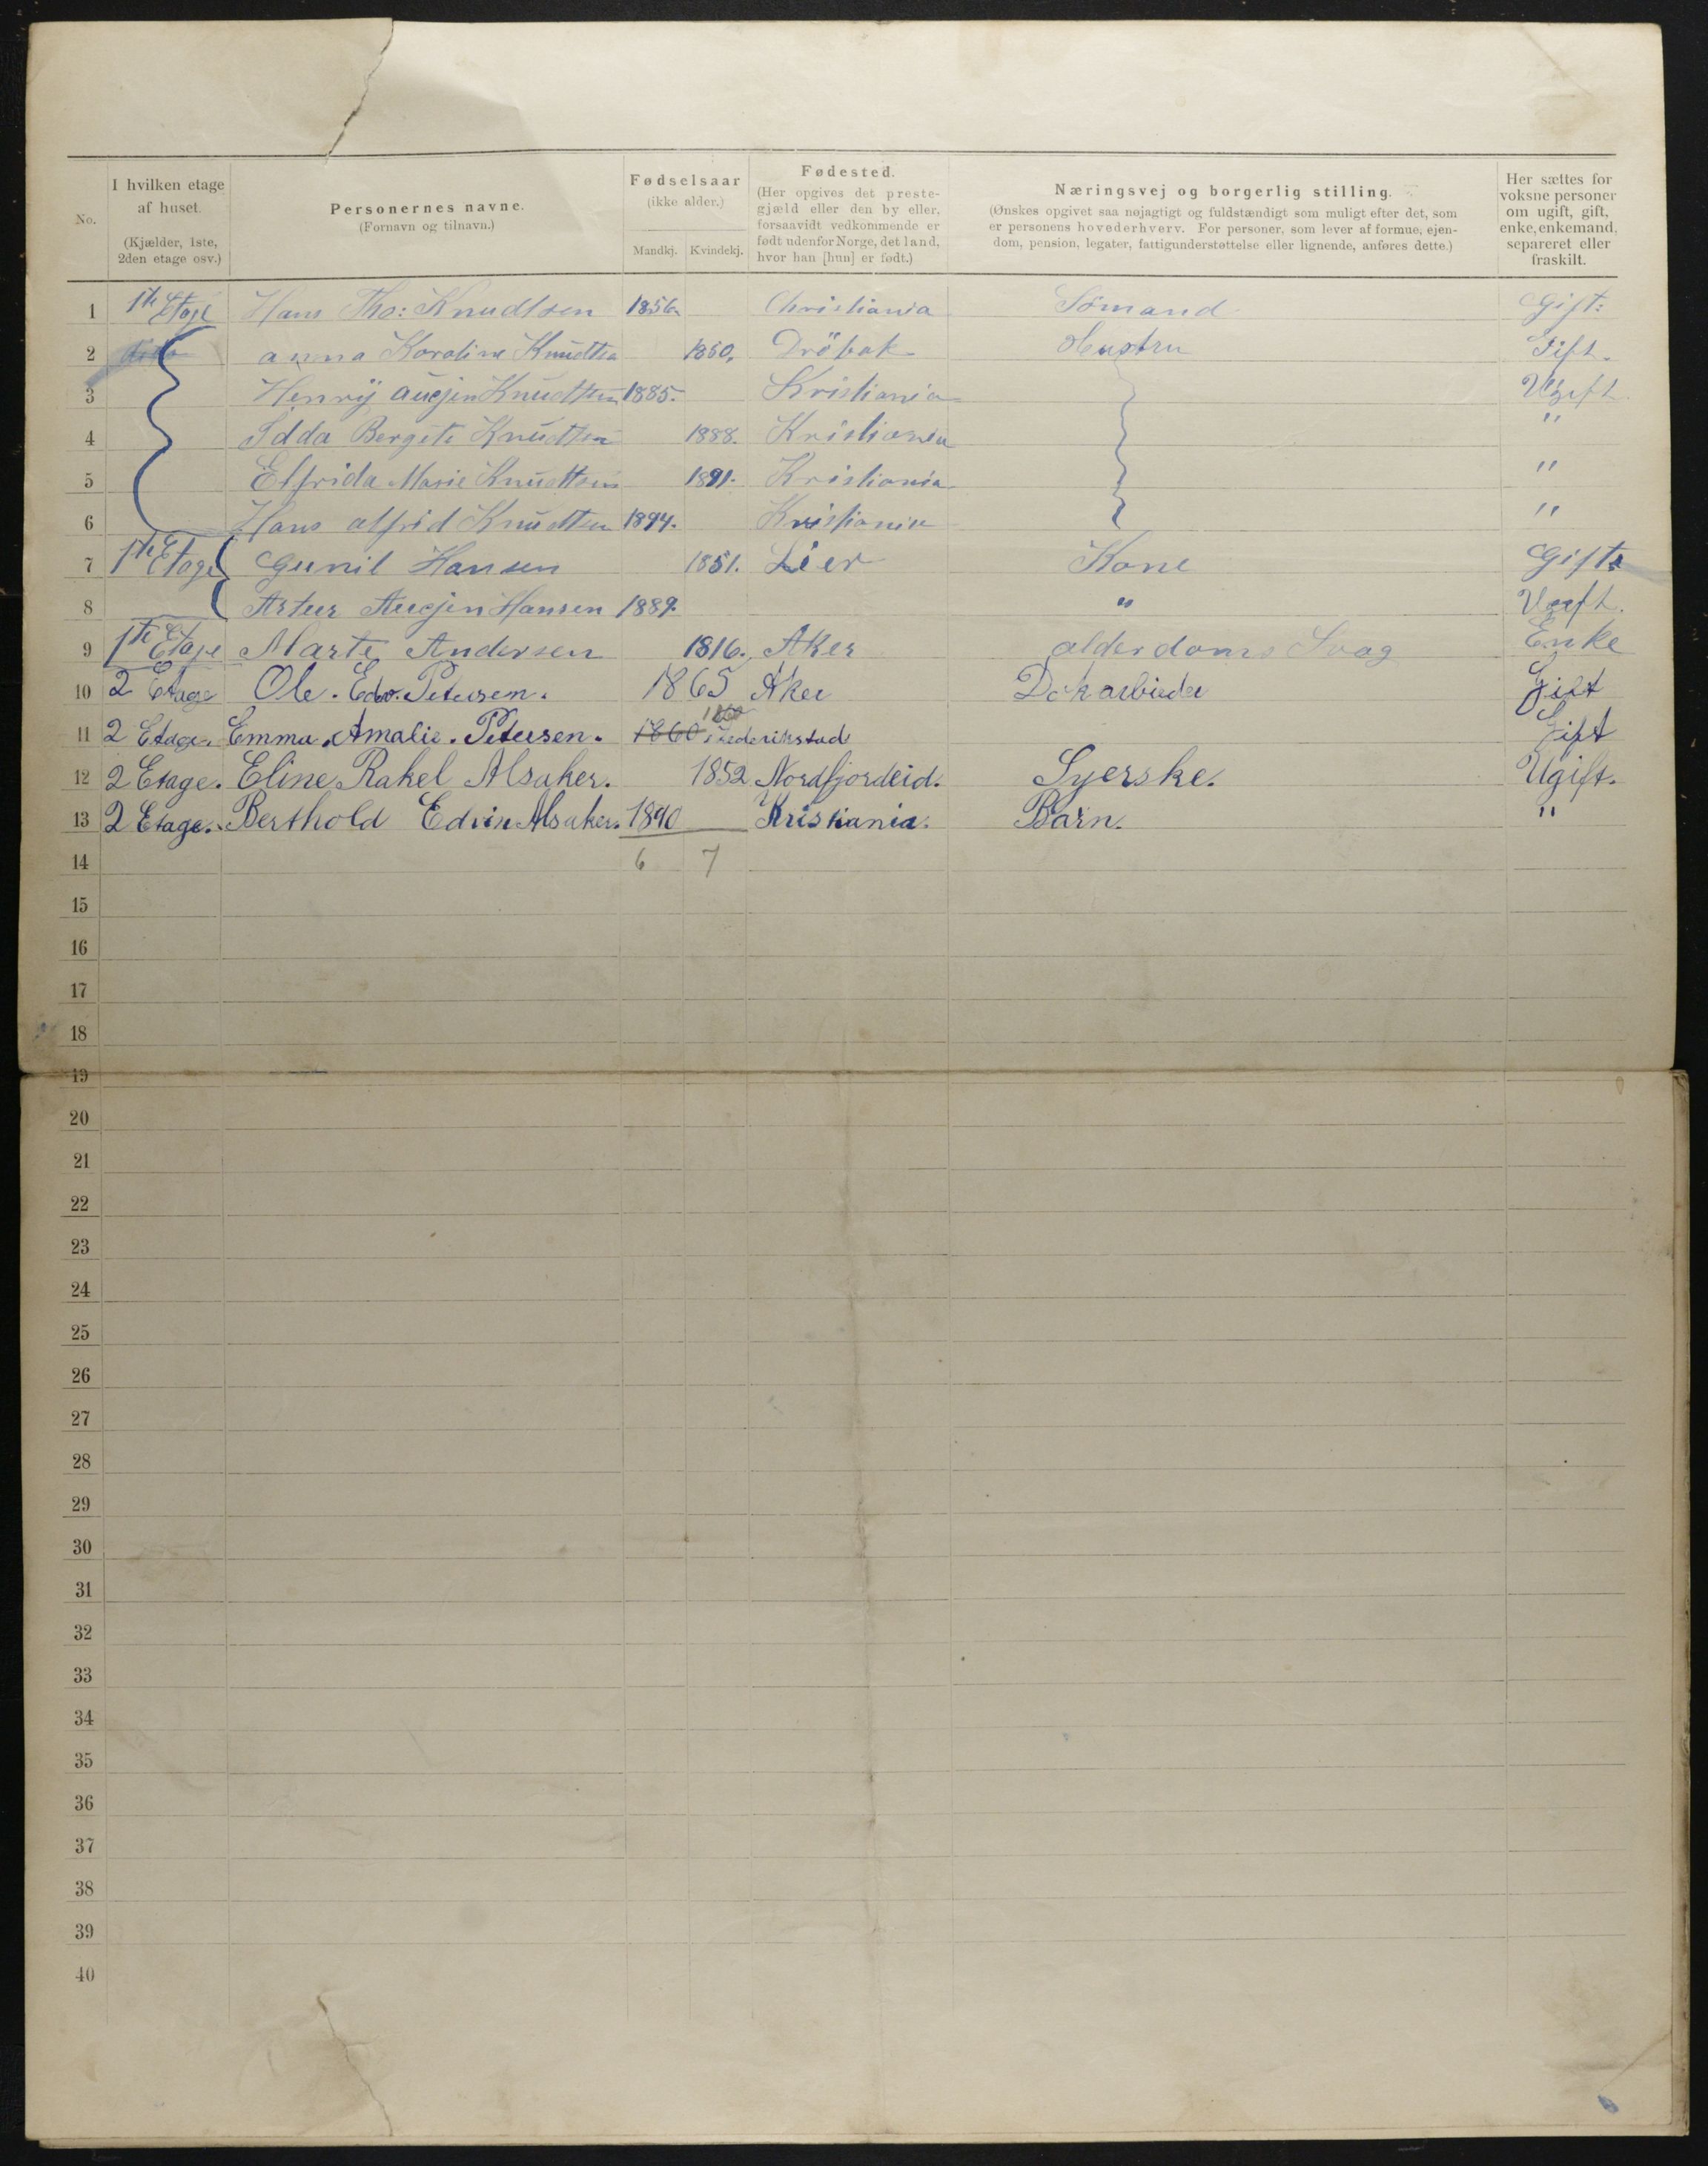 No.
I hvilken etage af huset. (Kjælder, 1ste, 2den etage osv.)
Personernes navne. (Fornavn og tilnavn.)
Fødselsaar (ikke alder.) Mandkj. Kvindekj.
Fødested. (Her opgives det prestegjæld eller den by eller, forsaavidt vedkommende er født udenfor Norge, det land, hvor han [hun] er født.)
Næringsvej og borgerlig stilling. (Ønskes opgivet saa nøjagtigt og fuldstændigt som muligt efter det, som er personens hovederhverv. For personer, som lever af formue, ejendom, pension, legater, fattigunderstøttelse eller lignende, anføres dette.)
Her sættes for voksne personer om ugift, gift, enke, enkemand, separeret eller fraskilt.
1 1ste Etage Hans Tho: Knudtsen 1856. Christiania Sømand Gift:
2 anna Karoline Knudtsen 1860. Dröbak Hustru Gift.
3 Henrÿ augjen Knudtsen 1885. Kristiania Ugift
4 Idda Bergete Knudtsen 1888. Kristiania "
5 Elfrida Marie Knudtsen 1891. Kristiania "
6 Hans alfrid Knudtsen 1894. Kristiania "
7 1ste Etage Gunil Hansen 1851. Lier Kone Gift
8 Artur Augjen Hansen 1889. " Ugift.
9 1ste Etage Marte Andersen 1816. Aker alderdoms Svag Enke
10 2 Etage Ole. Edv. Petersen. 1865 Aker Dokarbeider Gift
11 2 Etage. Emma. Amalie. Petersen. 1860 1860 Frederikstad Gift
12 2 Etage. Eline Rakel Alsaker. 1852 Nordfjordeid. Syerske. Ugift.
13 2 Etage. Berthold Edvin Alsaker. 1890 Kristiania. Barn. "
14 6 7
15
16
17
18
19
20
21
22
23
24
25
26
27
28
29
30
31
32
33
34
35
36
37
38
39
40